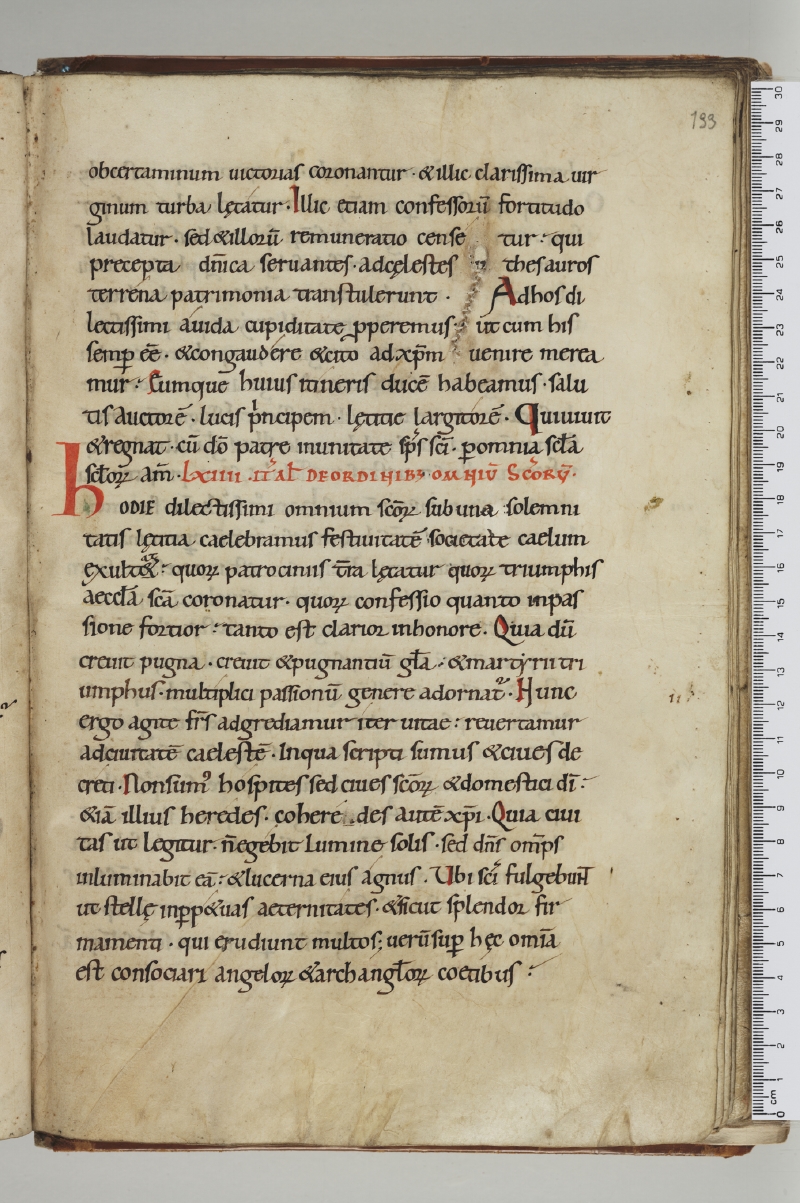 193
obcertaminum uictorias coronantur · &illic clarissima uir
ginum turba lętatur · Illic etiam confessorū fortitudo
laudatur · sed &illorū remuneratio cense tur · qui
precepta dnīca seruantes · adcęlestes thesauros
terrena patrimonia transtulerunt · Adhos di
lectissimi auida cupiditate ꝓperemus · ut cum his
semꝑ eē · &congaudere &cito ad xp̄m uenire merea
mur · Cumque huius itineris ducē habeamus · salu
tis Auctorē · lucis pͥncipem · lętitie largitorē · Quiuiuit
&regnat · cū dō patre inunitate sp̄s sc̄i · ꝑ omnia sc̄la
sc̄loꝝ am̄ · LXIIII · ITĀL DE ORDINIB; OMNIŪ SC̄ORŪ ·
hODIE dilectissimi omnium sc̄oꝝ sub una solemni
tatis lętitia caelebramus festiuitatē societate caelum
exult& · quoꝝ patrociniis t̄ra lętatur quoꝝ triumphis
aeccl̄a sc̄a coronatur · quoꝝ confessio quanto inpas
sione fortior · tanto est clarior inhonore · Quia dū
creuit pugna · creuit &pugnantiū gl̄a · &martyrii tri
umphus · multiplici passionū genere adornat᷑ · Hunc
ergo agite fr̄s adgrediamur iter uitae · reuertamur
adciuitatē caelestē · Inqua scripti sumus &ciues de
creti · Nonsumꝰ hospites sed ciues sc̄oꝝ &domestici dī ·
&iā illius heredes · cohere des autē xp̄i · Quia ciui
tas ut legitur · n̄egebit Lumine solis · sed dn̄s om̄ps
inluminabit eā · &lucerna eius agnus · Ubi sc̄i fulgebunt
ut stellę inꝑp&uas aeternitates · &sicut splendor fir
mamenti · qui erudiunt multos; uerū suꝑ hęc omīa
est consociari angeloꝝ &archangl̄oꝝ coetibus ·